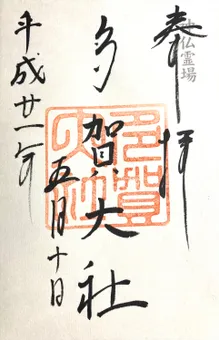 奉拝
神仏霊場
多賀大社
平成廿一年
五月十日